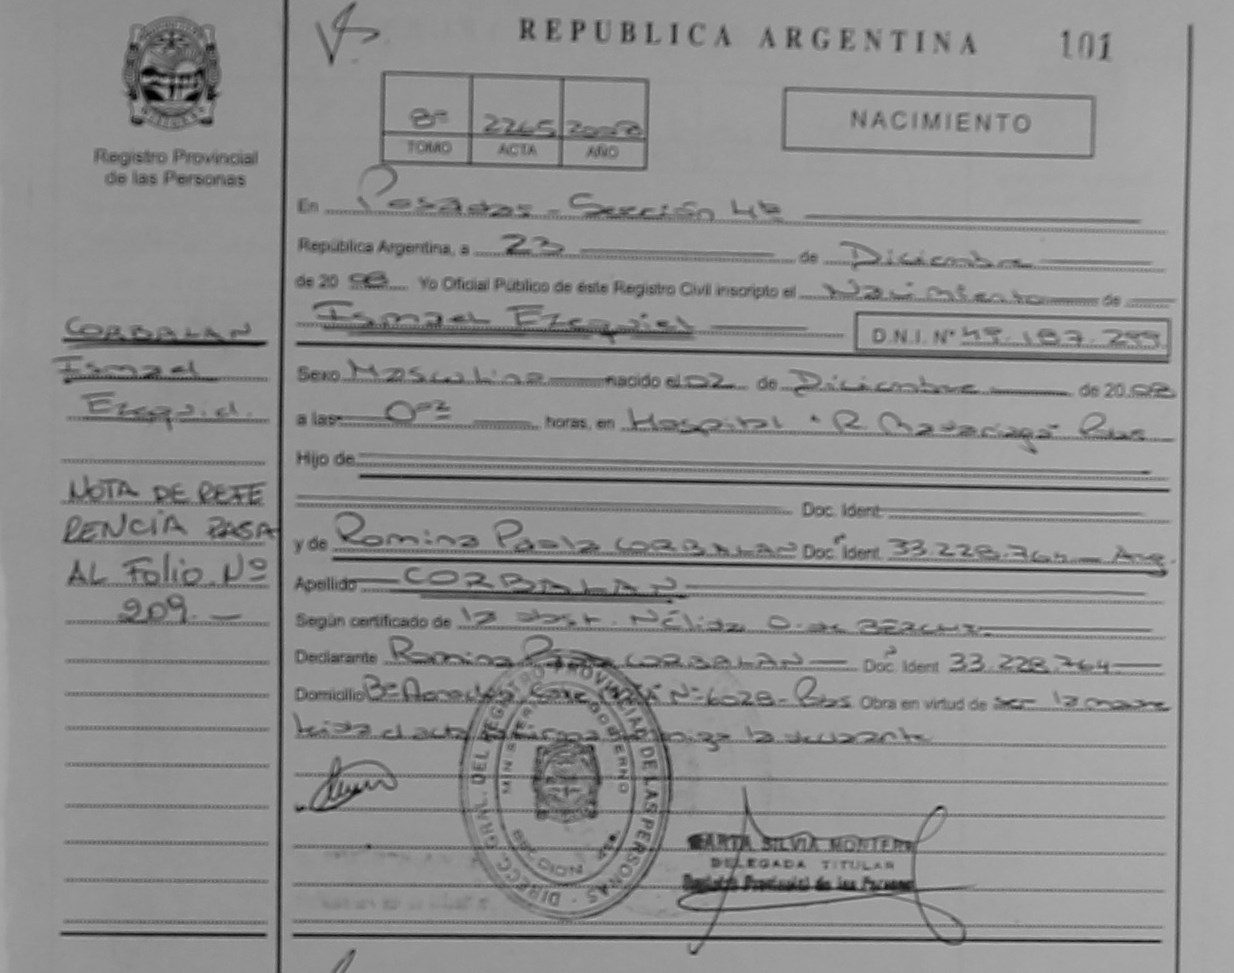 REPUBLICA ARGENTINA 101
8º 2265 2008
TOMO ACTA AÑO
NACIMIENTO
Registro Provincial
de las Personas
En Posadas - Sección 4ª
República Argentina, a 23 de Diciembre
de 20 08 Yo Oficial Público de éste Registro Civil inscripto el Nacimiento de
Ismael Ezequiel D.N.I. Nº 49.187.299
Sexo Masculino nacido el 02 de Diciembre de 20 08
a las horas, en Hospital "R. Madariaga" Pdas
Hijo de
Doc. Ident.
y de Romina Paola CORBALAN Doc. Ident. 33.228.764 - Arg.
Apellido CORBALAN
Según certificado de la obst. Nélida
Declarante Romina Paola CORBALAN Doc. Ident 33.228.764
Domicilio Bº Nº 6028 - Pdas Obra en virtud de ser la madre
leida el acta firma conmigo la declarante
CORBALAN
Ismael
Ezequiel.
NOTA DE REFE
RENCIA PASA
AL Folio Nº
209. -
DIRECC. GRAL. DEL REGISTRO PROVINCIAL DE LAS PERSONAS
MARTA SILVIA MONTERO
DELEGADA TITULAR
Registro Provincial de las Personas